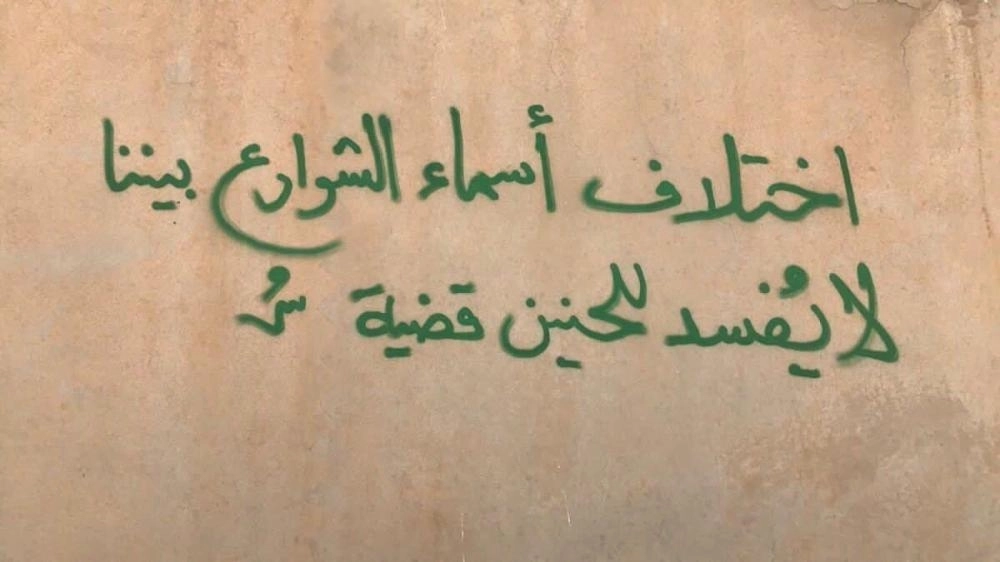 اختلاف أسماء الشوارع بيننا
لا يُفسد للحنين قضية